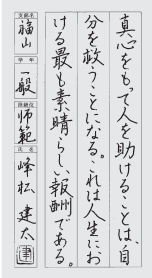 真心をもって人を助けることは、自
分を救うことになる。これは人生にお
ける最も素晴らしい報酬である。
支部名
福山
学年
一般
段級位
師範
氏名
峰松 建太